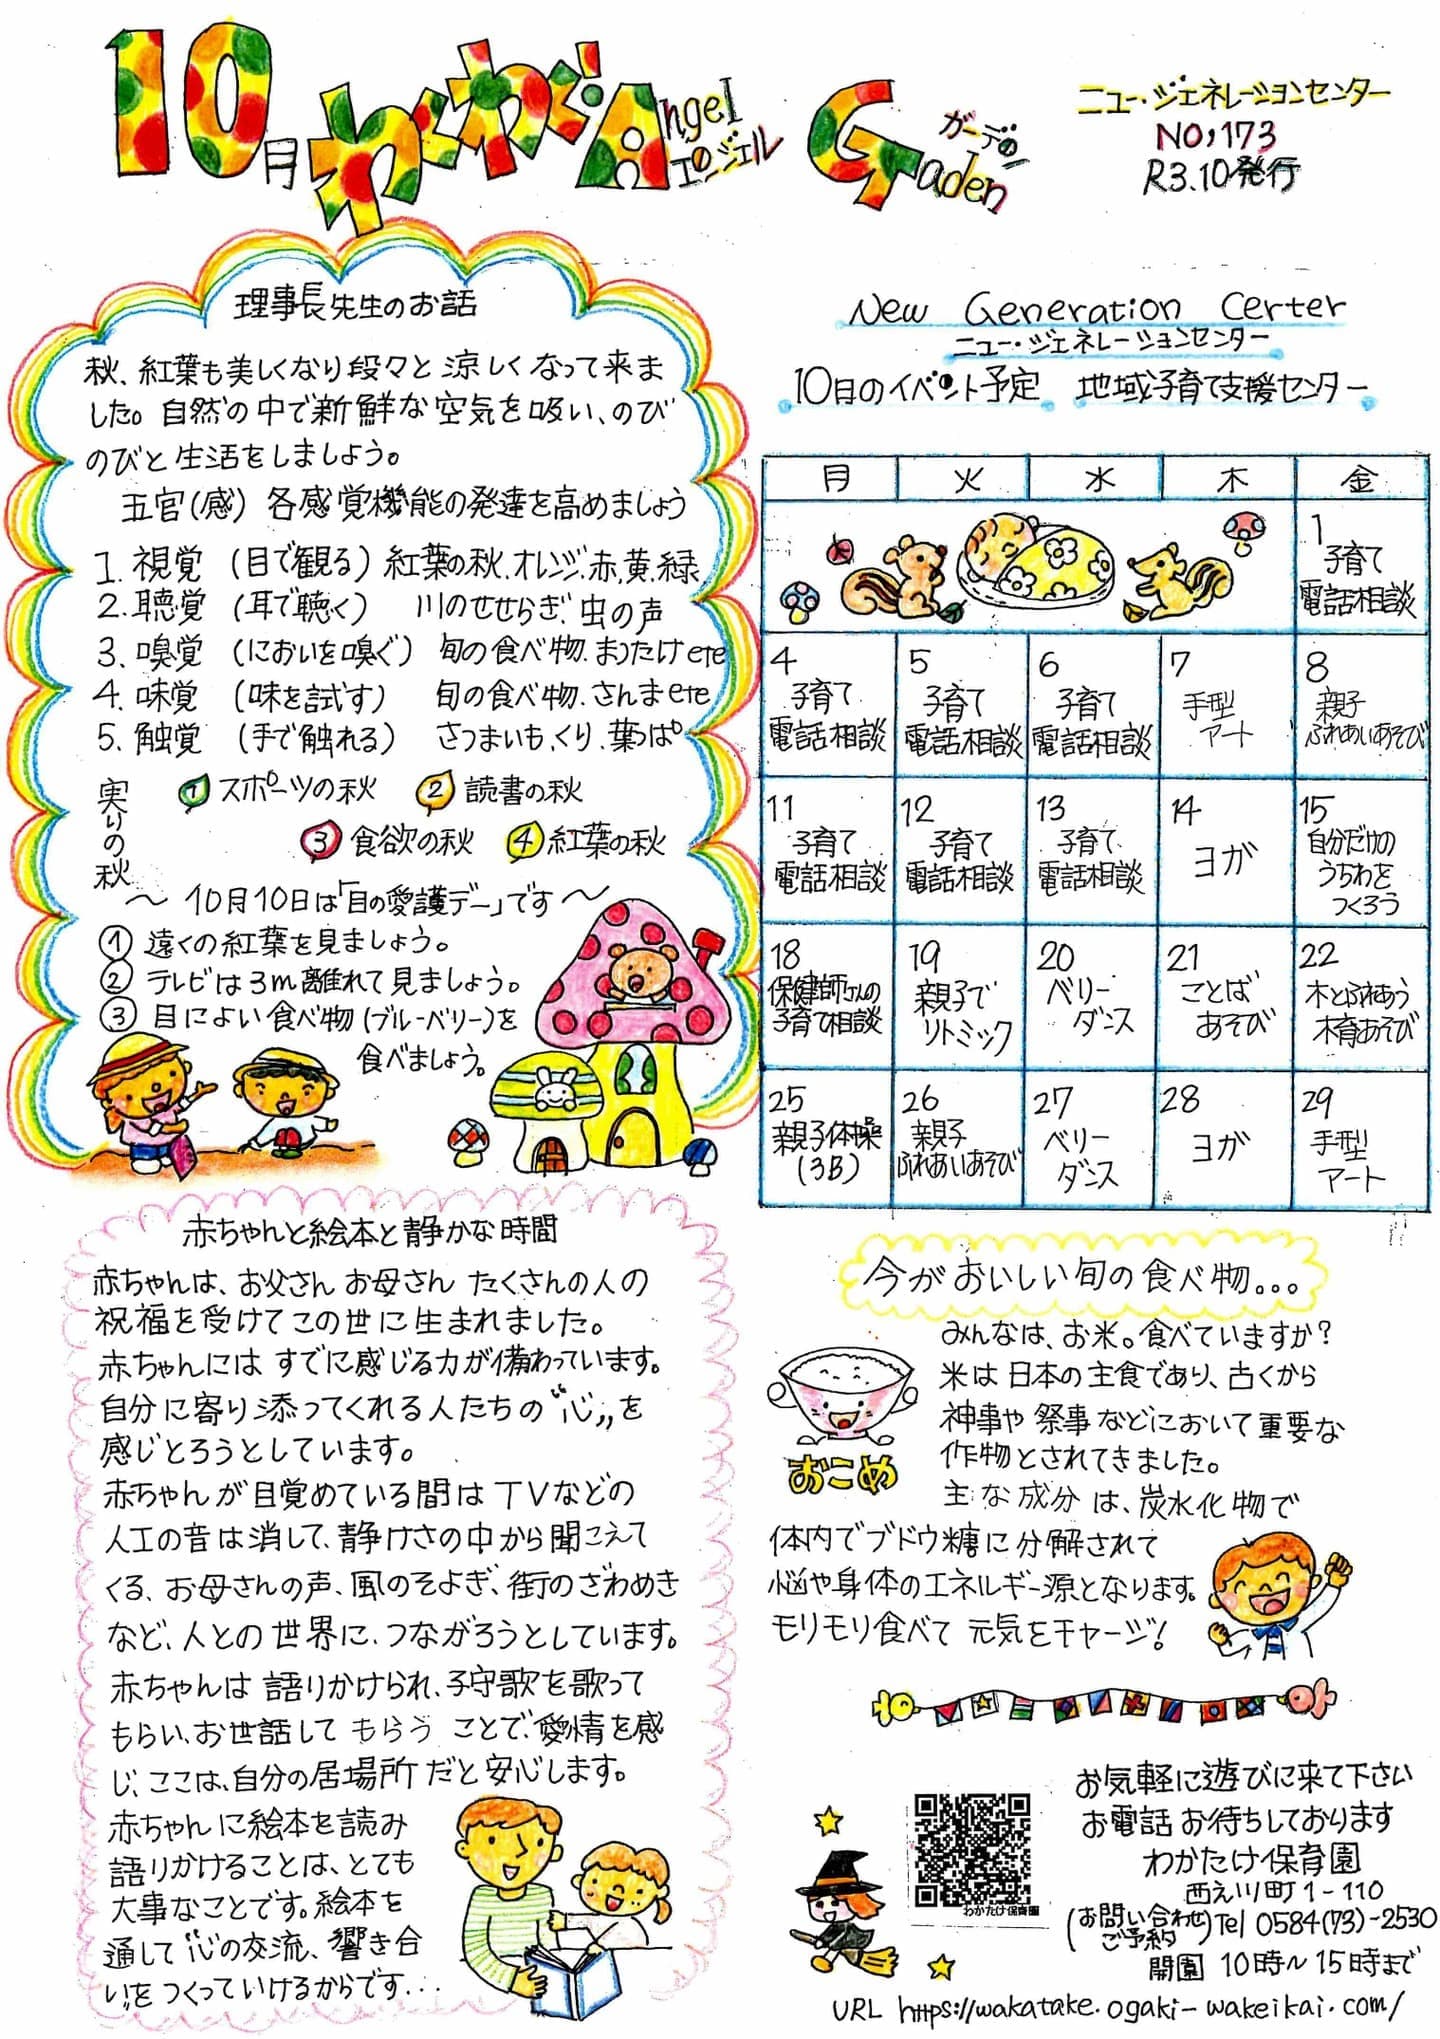 10月 わくわく Angel Gaden
エンジェル ガーデン
ニュー・ジェネレーションセンター
NO,173
R3.10発行
理事長先生のお話
秋、紅葉も美しくなり段々と涼しくなって来ま
した。自然の中で新鮮な空気を吸い、のび
のびと生活をしましょう。
五官(感) 各感覚機能の発達を高めましょう
1. 視覚 (目で観る) 紅葉の秋.オレンジ.赤,黄.緑
2. 聴覚 (耳で聴く) 川のせせらぎ、虫の声
3. 嗅覚 (においを嗅ぐ) 旬の食べ物.まつたけetc
4. 味覚 (味を試す) 旬の食べ物.さんまetc
5. 触覚 (手で触れる) さつまいも,くり、葉っぱ
実りの秋
1 スポーツの秋 2 読書の秋
3 食欲の秋 4 紅葉の秋
〜 10月10日は「目の愛護デー」です 〜
① 遠くの紅葉を見ましょう。
② テレビは3m離れて見ましょう。
③ 目によい食べ物(ブルーベリー)を
食べましょう。
New Generation Certer
ニュー・ジェネレーションセンター
10日のイベント予定 地域子育て支援センター
月 火 水 木 金
1 子育て電話相談
4 子育て電話相談
5 子育て電話相談
6 子育て電話相談
7 手型アート
8 親子ふれあいあそび
11 子育て電話相談
12 子育て電話相談
13 子育て電話相談
14 ヨガ
15 自分だけのうちわをつくろう
18 保健師さんの子育て相談
19 親子でリトミック
20 ベリーダンス
21 ことばあそび
22 木とふれあう木育あそび
25 親子体操(3B)
26 親子ふれあいあそび
27 ベリーダンス
28 ヨガ
29 手型アート
赤ちゃんと絵本と静かな時間
赤ちゃんは、お父さん お母さん たくさんの人の
祝福を受けてこの世に生まれました。
赤ちゃんには すでに感じる力が備わっています。
自分に寄り添ってくれる人たちの“心„を
感じとろうとしています。
赤ちゃんが目覚めている間はTVなどの
人工の音は消して、静けさの中から聞こえて
くる、お母さんの声、風のそよぎ、街のざわめき
など、人との世界に、つながろうとしています。
赤ちゃんは 語りかけられ、子守歌を歌って
もらい、お世話して もらう ことで、愛情を感
じ、ここは、自分の居場所だと安心します。
赤ちゃんに絵本を読み
語りかけることは、とても
大事なことです。絵本を
通して“心の交流、響き合
い„をつくっていけるからです...
今がおいしい旬の食べ物...
みんなは、お米。食べていますか?
米は日本の主食であり、古くから
神事や祭事などにおいて重要な
作物とされてきました。
主な成分は、炭水化物で
体内でブドウ糖に分解されて
脳や身体のエネルギー源となります。
モリモリ食べて 元気をチャージ!
おこめ
お気軽に遊びに来て下さい
お電話お待ちしております
わかたけ保育園
わかたけ保育園
西之川町1-110
(お問い合わせ ご予約) Tel 0584(73)-2530
開園 10時〜15時まで
URL https://wakatake.ogaki-wakeikai.com/